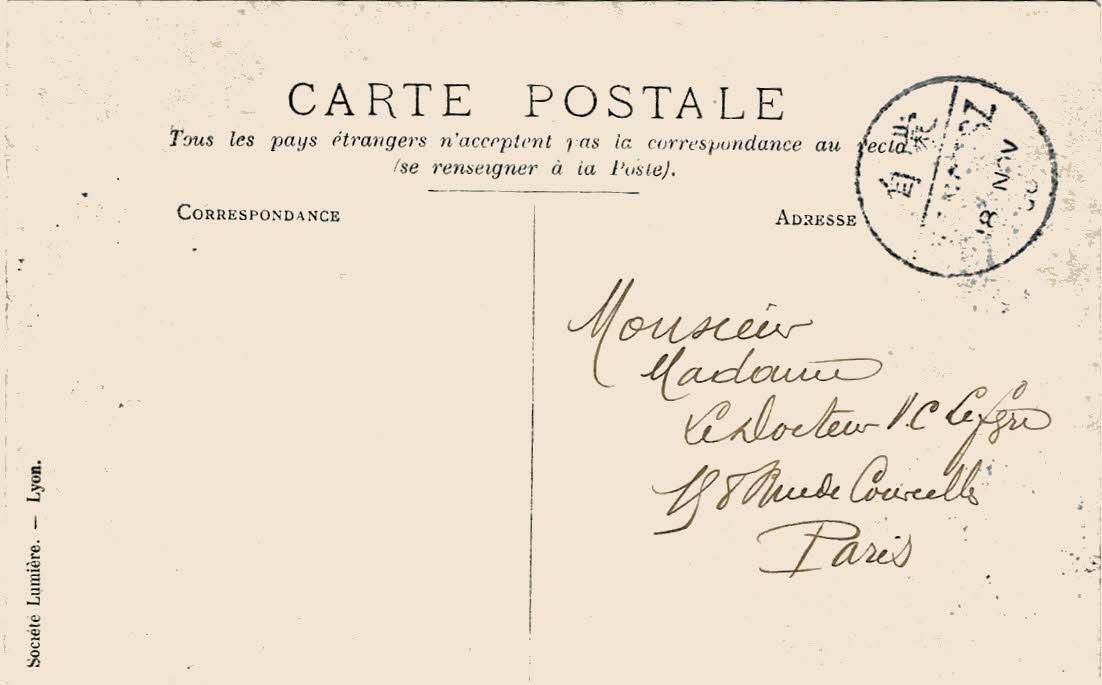 CARTE POSTALE
Tous les pays étrangers n'acceptent pas la correspondance au recto
(se renseigner à la Poste).
CORRESPONDANCE
ADRESSE
18 NOV
Monsieur
Madame
Le Docteur
158 Rue de Courcelles
Paris
Société Lumière. — Lyon.